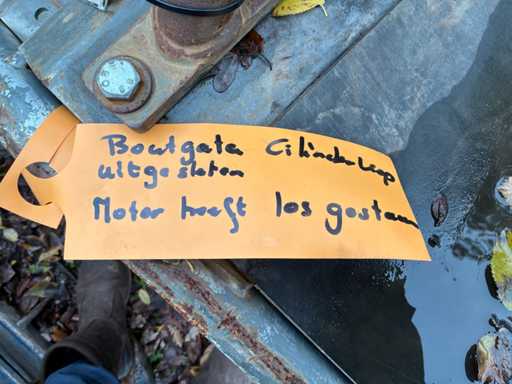 Boutgata Cilinderkop
uitgesleten
Motor heeft los gestaan